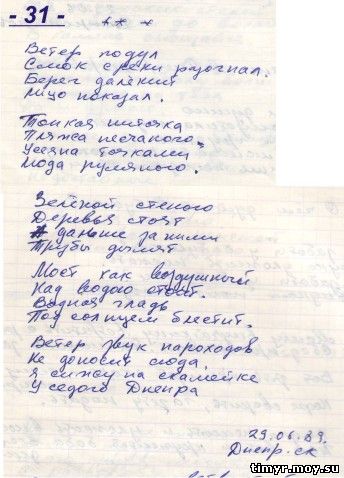 - 31 -
* * *
Ветер подул
Смок с реки разогнал.
Берег далекий
Лицо показал.
Тонкая ниточка
Пляжа песчаного,
Усеяна точками
Люда румяного.
Зелёной стеною
Деревья стоят
А дальше за ними
Трубы дымят
Мост как воздушный
Над водою стоит.
Водная гладь
Под солнцем блестит.
Ветер звук пароходов
Не доносит сюда,
Я сижу на скамейке
У седого Днепра
29.06.89.
Днепр. ск
timyr.moy.su